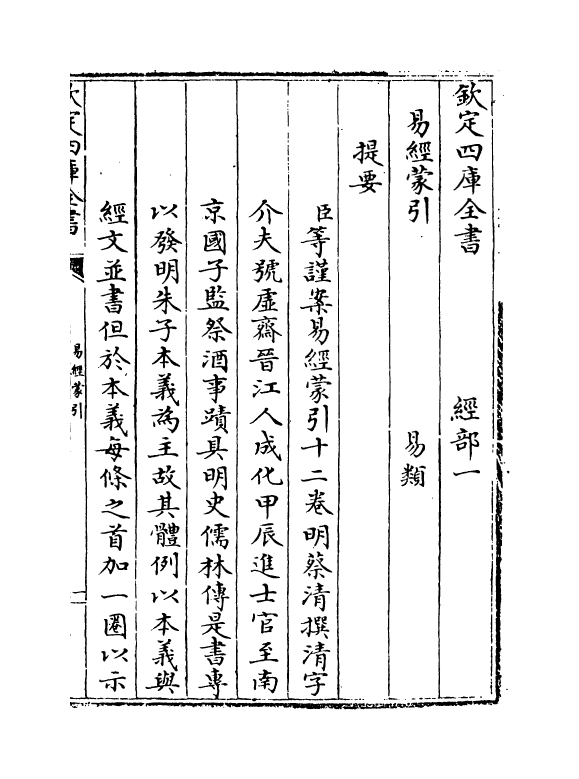 欽定四庫全書　經部一
易經蒙引　易類
提要
臣等謹案易經蒙引十二卷明蔡清撰清字
介夫號虛齋晉江人成化甲辰進士官至南
京國子監祭酒事蹟具明史儒林傳是書専
以發明朱子本義為主故其體例以本義與
經文並書但於本義每條之首加一圈以示
欽定四庫全書
易經蒙引
一